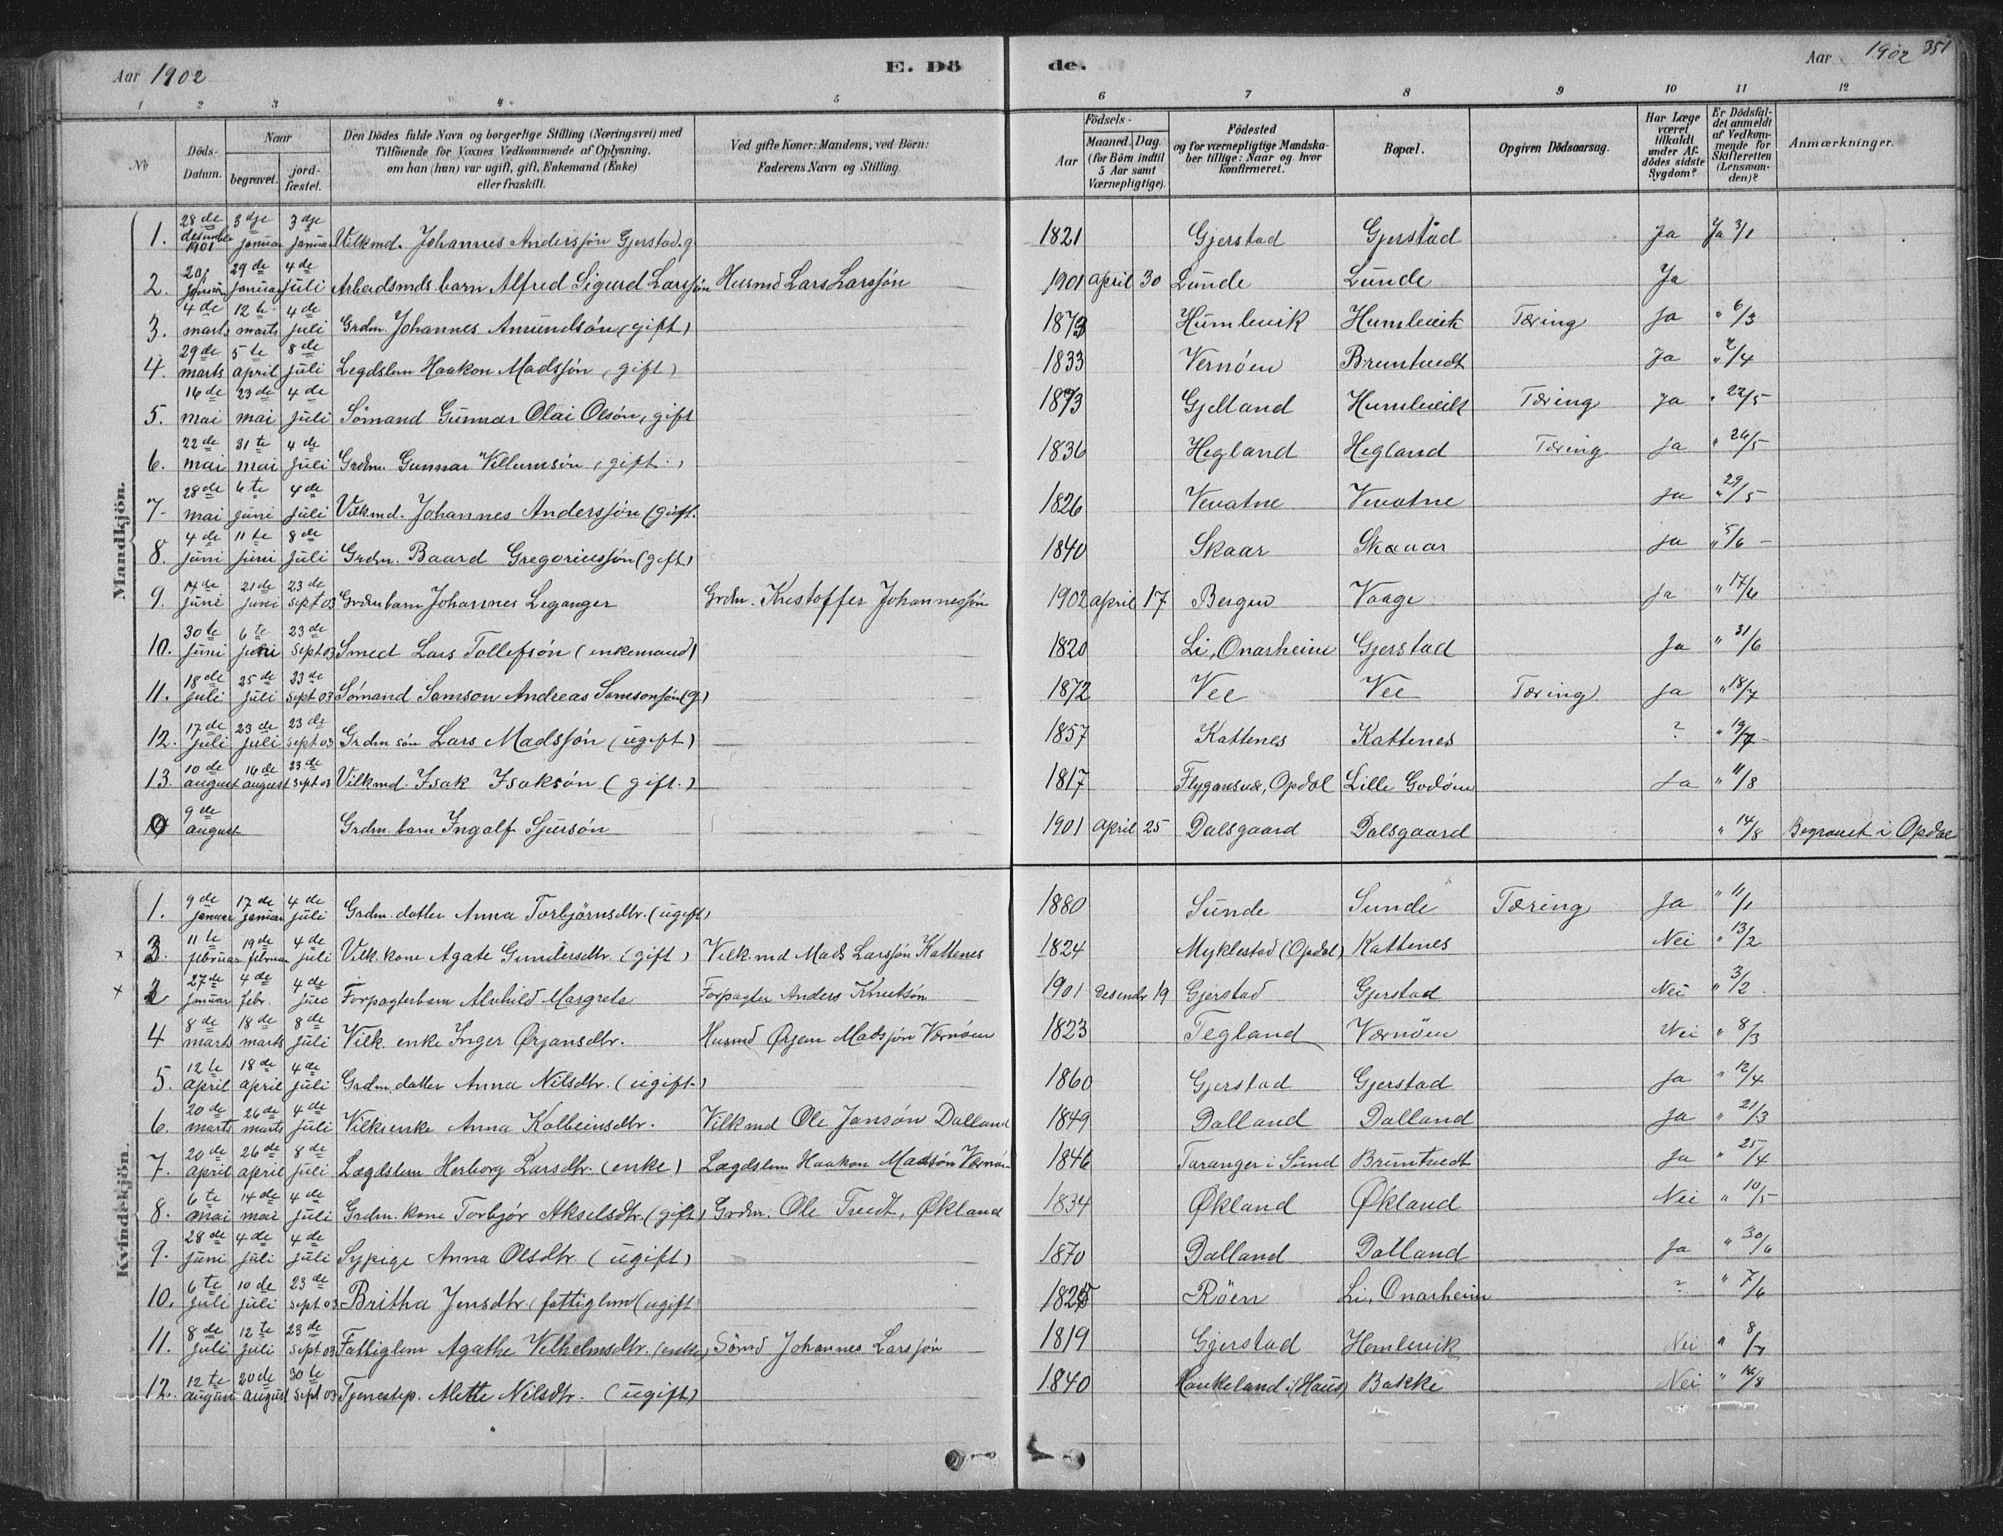 Aar 1902 E. Dö de. Aar 1902 351
1 2 3 4 5 6 7 8 9 10 11 12
No
Döds-Datum.
Naar
begravet.
jordfæstet.
Den Dödes fulde Navn og borgerlige Stilling (Næringsvei) med
Tilföiende for Voxnes Vedkommende af Oplysning,
om han (hun) var ugift, gift, Enkemand (Enke)
eller fraskilt.
Ved gifte Koner: Mandens, ved Börn:
Faderens Navn og Stilling.
Födsels-
Aar
Maaned. Dag.
(for Börn indtil
5 Aar samt
Værnepligtige).
Födested
og for værnepligtige Mandskaber tillige: Naar og hvor
konfirmeret.
Bopæl.
Opgiven Dödsaarsag.
Har Læge
været
tilkaldt
under Afdödes sidste
Sygdom?
Er Dödsfaldet anmeldt
af Vedkommende for
Skifteretten
(Lensmanden)?
Anmærkninger.
Mandkjön.
1. 28de desember 1901 3dje januar 3dje januar Vilkmd. Johannes Andersjøn Gjerstad. g 1821 Gjerstad Gjerstad Ja Ja 3/1
2. 20 januar 29de januar 4de juli Arbeidsmds. barn Alfred Sigurd Larsjøn Husmd Lars Larsjøn 1901 april 30 Lunde Lunde Ja
3. 4de marts 12te marts 4de juli Grdm. Johannes Amundsøn (gift) 1873 Humlevik Humlevik Tæring Ja " 6/3
4. 29de marts 5te april 8de juli Legdslem Haakon Madsjøn (gift) 1833 Vernøen Bruntvedt Ja " 2/4
5. 16de mai 23de mai 4de juli Sømand Gunnar Olai Olsøn, gift 1873 Gjelland Humlevik Tæring Ja " 22/5
6. 22de mai 31te mai 4de juli Grdm. Gunnar Villumsøn (gift.) 1836 Hegland Hegland Tæring Ja " 26/5
7. 28de mai 6te juni 4de juli Vilkmd. Johannes Andersjøn (gift. 1826 Vevatne Vevatne Ja " 29/5
8. 4de juni 11te juni 8de juli Grdm. Baard Gregoriussjøn (gift) 1840 Skaar Skaaar Ja " 5/6
9. 14de juni 21de juni 23de sept 03 Grdm barn Johannes Leganger Grdm. Kristoffer Johannessjøn 1902 april 17 Bergen Vaage Ja " 17/6
10. 30te juni 6te juni 23de sept 03 Smed Lars Tollefsøn (enkemand) 1820 Li, Onarheim Gjerstad Ja " 31/6
11. 18de juli 25de juli 23de sept 03 Sømand Samson Andreas Samsonsjøn (g) 1872 Vee Vee Tæring Ja " 18/7
12. 17de juli 23de juli 23de sept 03 Grdm søn Lars Madsjøn (ugift) 1857 Kattenes Kattenes ? " 19/7
13. 10de august 16de august 23de sept 03 Vilkmd. Isak Isaksøn (gift.) 1817 Flyganesvæ, Opdal Lille Godøen Ja " 11/8
0 9de august Grdm. barn Ingolf Sjursøn 1901 april 25 Dalsgaard Dalsgaard " 14/8 Begravet i Opdal
Kvindekjön.
1. 9de januar 17de januar 4de juli Grdm. datter Anna Torbjørnsdtr. (ugift) 1880 Sunde Sunde Tæring Ja " 11/1
x 3. 11te februar 19de februar 4de juli Vilk. kone Agate Gundersdtr. (gift) Vilk. md Mads Larsjøn Kattenes 1824 Myklestad (Opdal) Kattenes Nei " 13/2
x 2 27de januar 4de febr. 4de juli Forpagterbarn Alvhild Margrete Forpagter Anders Knutsøn 1901 desember 19 Gjerstad Gjerstad Nei " 3/2
4 8de marts 18de marts 8de juli Vilk. enke Inger Ørjansdtr. Husmd Ørjen Madsjøn Vernøen 1823 Tegland Værnøen Nei " 8/3
5. 12te april 18de april 4de juli Grdm. datter Anna Nilsdtr. (ugift.) 1860 Gjerstad Gjerstad Ja " 12/4
6. 20de marts 26de marts 4de juli Vilks enke Anna Kolbeinsdtr. Vilkmd Ole Jansøn Dalland 1849 Dalland Dalland Ja " 21/3
7. 20de april 26de april 8de juli Lægdslem Herborg Larsdtr. (enke) Lægdslem Haakon Madsøn Vernøen 1846 Taranger i Sund Bruntvedt Ja " 25/4
8. 6te mai 14de mai 4de juli Grdm. kone Torbjør Akselsdtr. (gift) Grdm. Ole Tvedt, Økland 1834 Økland Økland Nei " 10/5
9. 28de juni 4de juli 4de juli Sypige Anna Olsdtr. (ugift) 1870 Dalland Dalland Ja " 30/6
10. 6te juli 10de juli 23de sept 03 Britha Jensdtr (fattiglem (ugift) 1825 Røen Li, Onarheim ? " 7/6
11. 8de juli 12te juli 23de sept 03 Fattiglem Agathe Vilhelmsdtr. (enke) Sømd Johannes Larsjøn 1819 Gjerstad Homlevik Nei " 8/7
12. 12te august 20de august 30te sept 03 Tjenestep. Mette Nilsdtr. (ugift) 1840 Haukeland i (Haus) Bakke Nei " 16/8